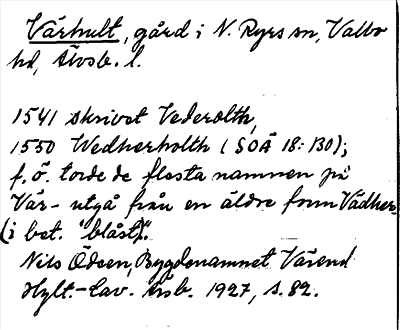 Värhult, gård i N. Ryrs sn, Valbo
hd, Älvsb. l.
1541 skrivet Vederolth,
1550 Wedherholth (SOÄ 18:130);
f. ö. torde de flesta namnen på
Vär- utgå från en äldre form Vädher-
(i bet. "blåst").
Nils Ödeen, Bygdenamnet Värend
Hylt.-Cav. Årsb. 1927, s. 82.